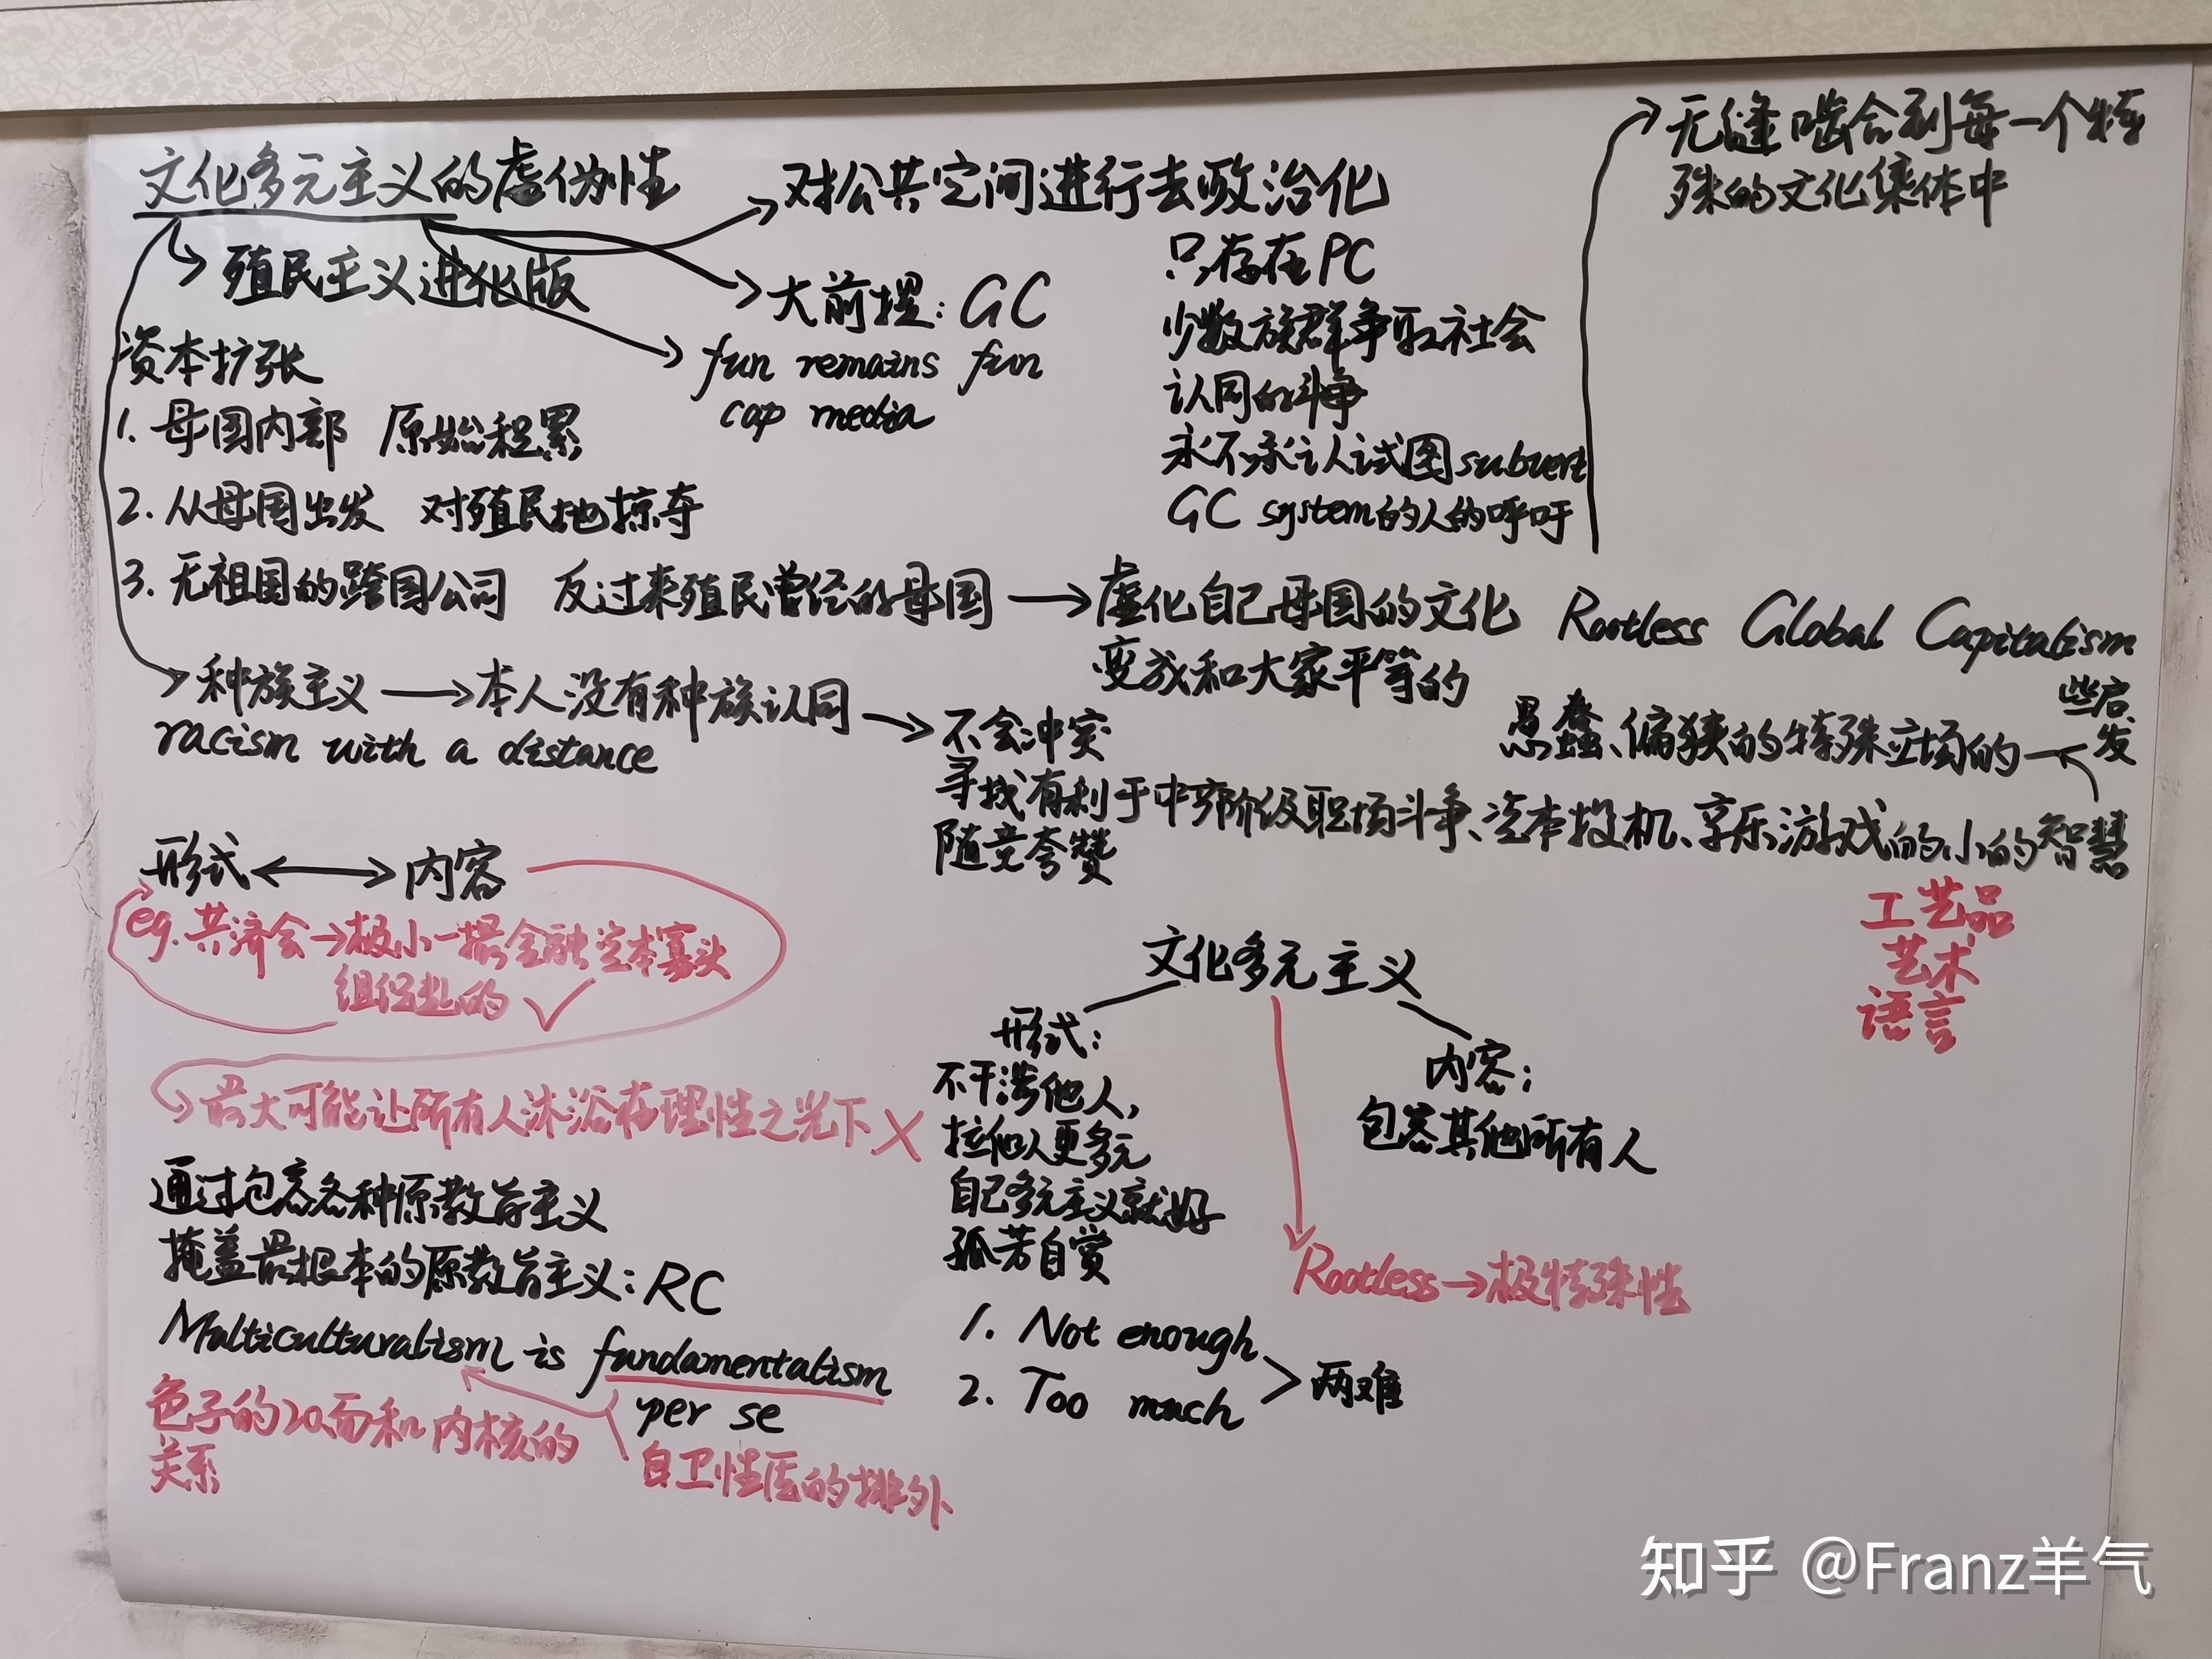 文化多元主义的虚伪性
殖民主义进化版
对公共空间进行去政治化
大前提：GC
fun remains fun
cap media
只存在PC
少数族群争取社会
认同的斗争
永不承认试图subvert
GC system的人的呼吁
无缝啮合到每一个特
殊的文化集体中
资本扩张
1. 母国内部 原始积累
2. 从母国出发 对殖民地掠夺
3. 无祖国的跨国公司 反过来殖民曾经的母国
虚化自己母国的文化
变成和大家平等的
Rootless Global Capitalism
种族主义
racism with a distance
本人没有种族认同
不会冲突
寻找有利于中产阶级职场斗争、资本投机、享乐游戏的小的智慧
随意夸赞
愚蠢、偏狭的特殊立场的
些启
发
工艺品
艺术
语言
形式
内容
eg.共济会→极小一撮金融资本寡头
组织起的
最大可能让所有人沐浴在理性之光下
通过包容各种原教旨主义
掩盖最根本的原教旨主义：RC
Multiculturalism is fundamentalism
per se
色子的20面和内核的
关系
自卫性质的排外
文化多元主义
形式：
不干涉他人，
拉他人更多元
自己多元主义就好
孤芳自赏
内容：
包容其他所有人
Rootless→极特殊性
1. Not enough
2. Too much
两难
知乎 @Franz羊气